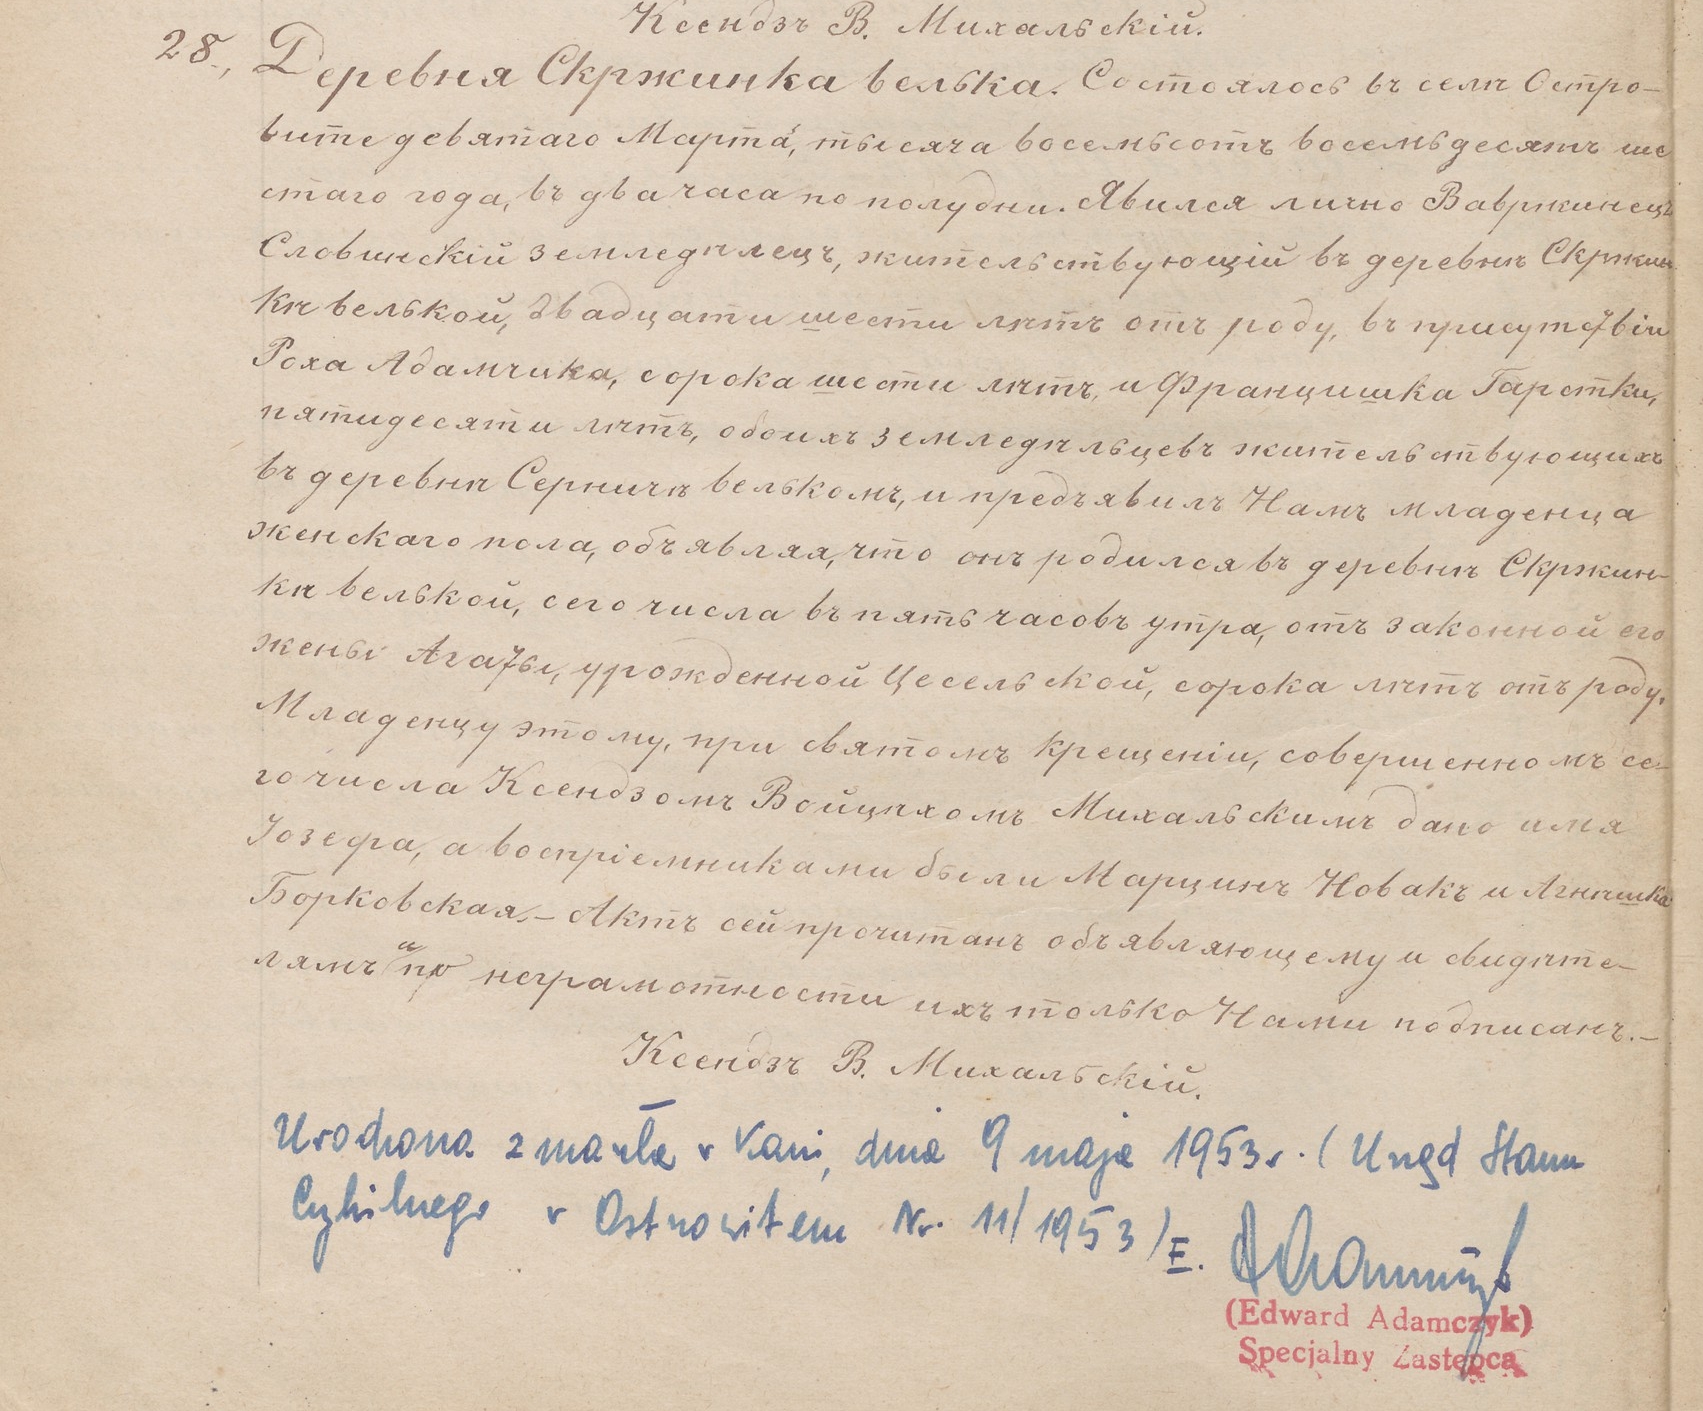 Ксендзъ В. Михальскій.
28., Деревня Скржинка велька. Состоялось въ селѣ Остро-
вите девятаго Марта, тысяча восемьсотъ восемьдесятъ ше
стаго года, въ два часа по полудни. Явился лично Вавржинецъ
Словинскій земледѣлецъ, жительствующій въ деревнѣ Скржин-
кѣ велькой, двадцати шести лѣтъ отъ роду, въ присутствіи
Роха Адамчика, сорока шести лѣтъ, и Францишка Гарстки,
пятидесяти лѣтъ, обоихъ земледѣльцевъ жительствующихъ
въ деревнѣ Серничѣ велькомъ, и предъявилъ Намъ младенца
женскаго пола, объявляя, что онъ родился въ деревнѣ Скржин-
кѣ велькой, сего числа въ пять часовъ утра, отъ законной его
жены Агаты, урожденной Цесельской, сорока лѣтъ отъ роду.
Младенцу этому, при святомъ крещеніи, совершенномъ се-
го числа Ксендзомъ Войцѣхомъ Михальскимъ дано имя
Іозефа, а воспріемниками были Марцинъ Новакъ и Агнѣшка
Борковская.- Актъ сей прочитанъ объявляющему и свидѣте-
лямъ а по неграмотности ихъ только Нами подписанъ.-
Ксендзъ В. Михальскій.
Urodzona zmarła w Kani, dnia 9 maja 1953 r. (Urząd Stanu
Cywilnego w Ostrowitem Nr. 11/1953/
(Edward Adamczyk)
Specjalny Zastępca